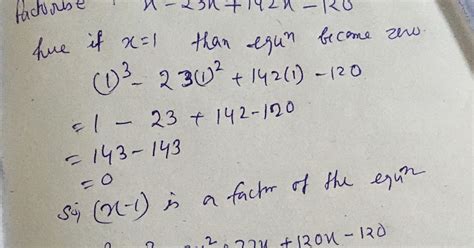 Factorise : x³ - 23x² + 142x - 120
here if x=1 than equⁿ become zero.
(1)³ - 23(1)² + 142(1) - 120
= 1 - 23 + 142 - 120
= 143 - 143
= 0
So, (x-1) is a factor of the equⁿ
x² + 22x + 120x - 120